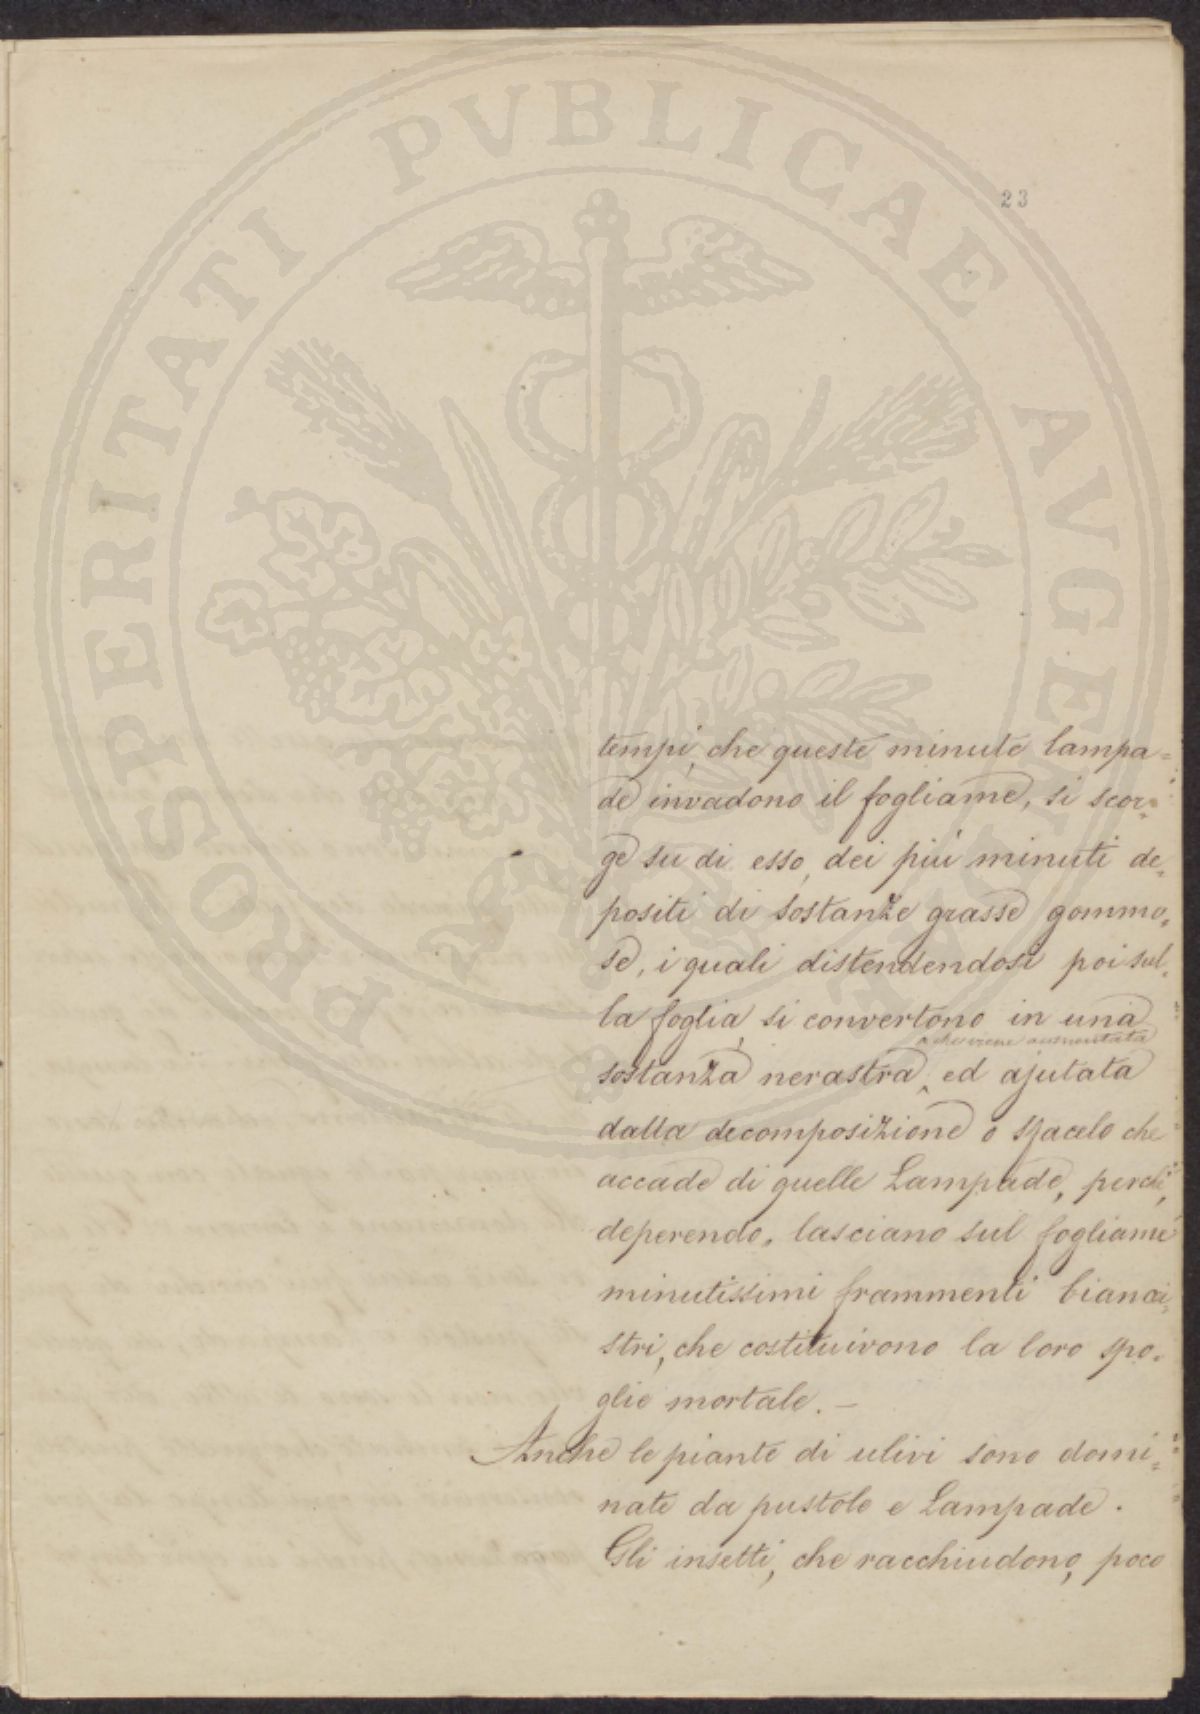 23
tempi, che queste minute lampa=
de invadono il fogliame, si scor=
ge su di esso, dei più minuti de=
positi di sostanze grasse gommo=
se, i quali distendendosi poi sul=
la foglia, si convertono in una
che viene aumentata
sostanza nerastra, ed ajutata
dalla decomposizione o sfacelo che
accade di quelle Lampade, perchè,
deperendo, lasciano sul fogliame
minutissimi frammenti bianci=
stri, che costituivono la loro spo=
glie mortale. —
Anche le piante di ulivi sono domi=
nate da pustole e Lampade.
Gli insetti, che racchiudono, poco
PROSPERITATI PVBLICAE AVGE